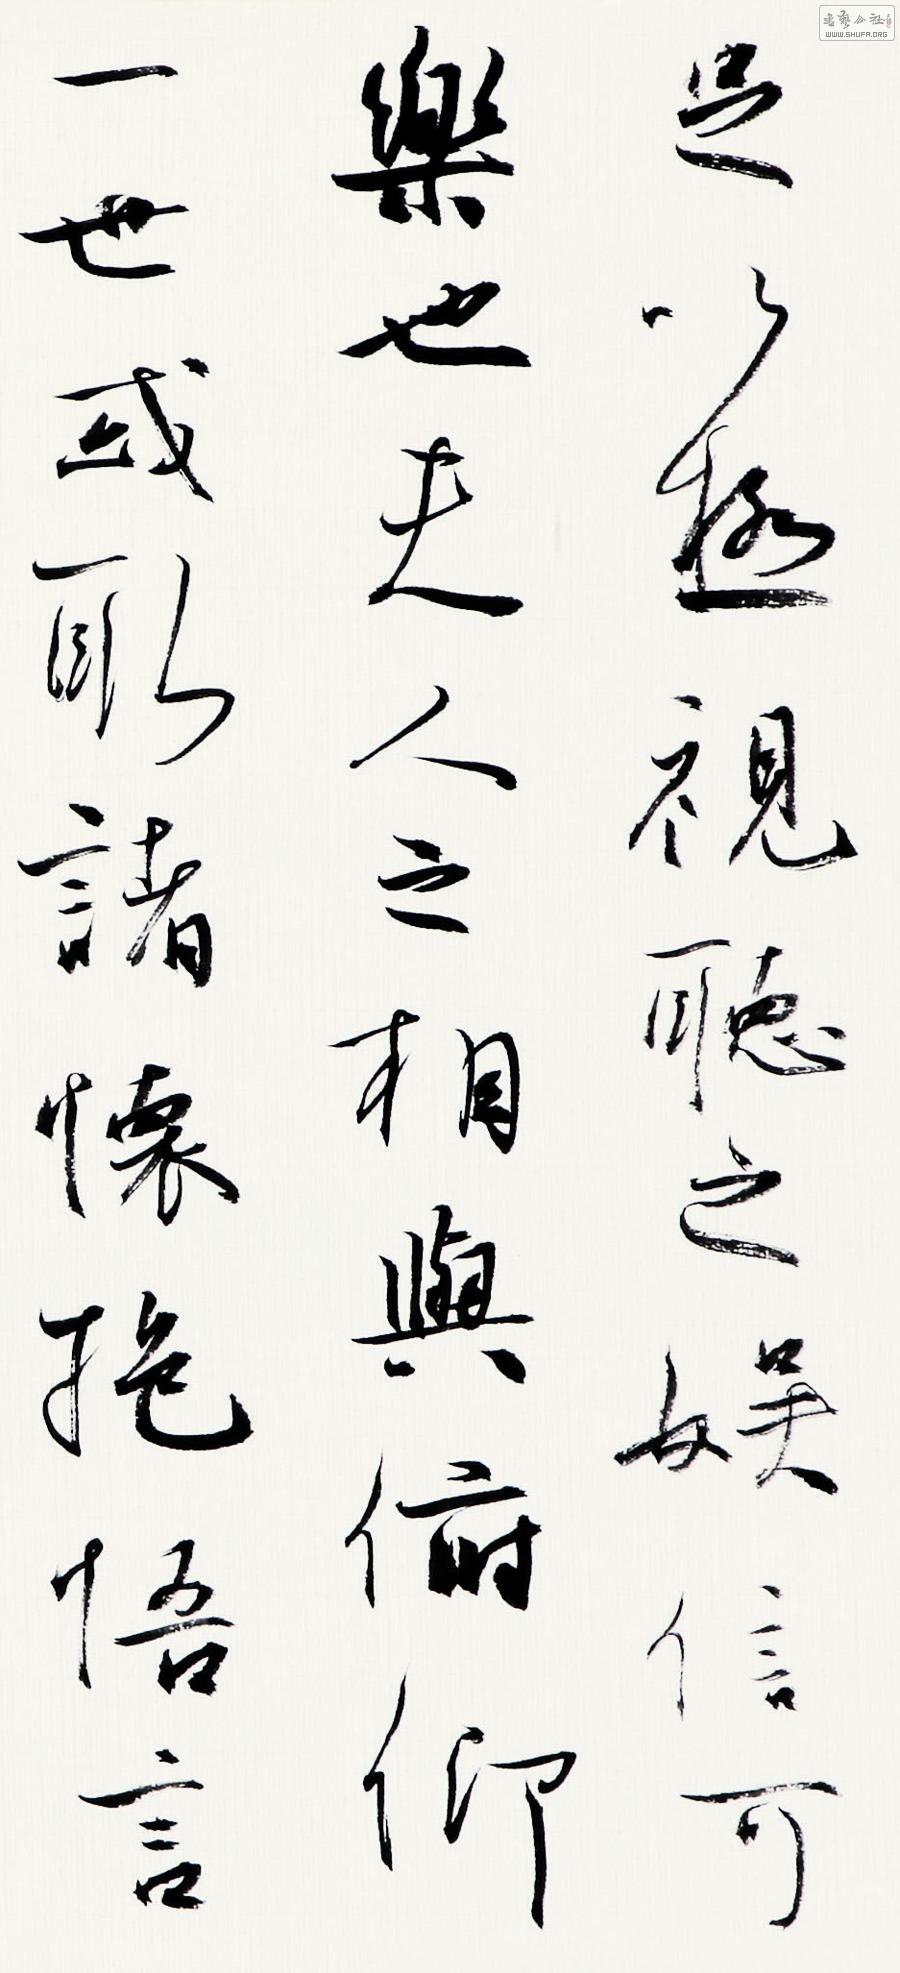 足以極視聽之娛信可
樂也夫人之相與俯仰
一世或取諸懷抱悟言
WWW.SHUFA.ORG